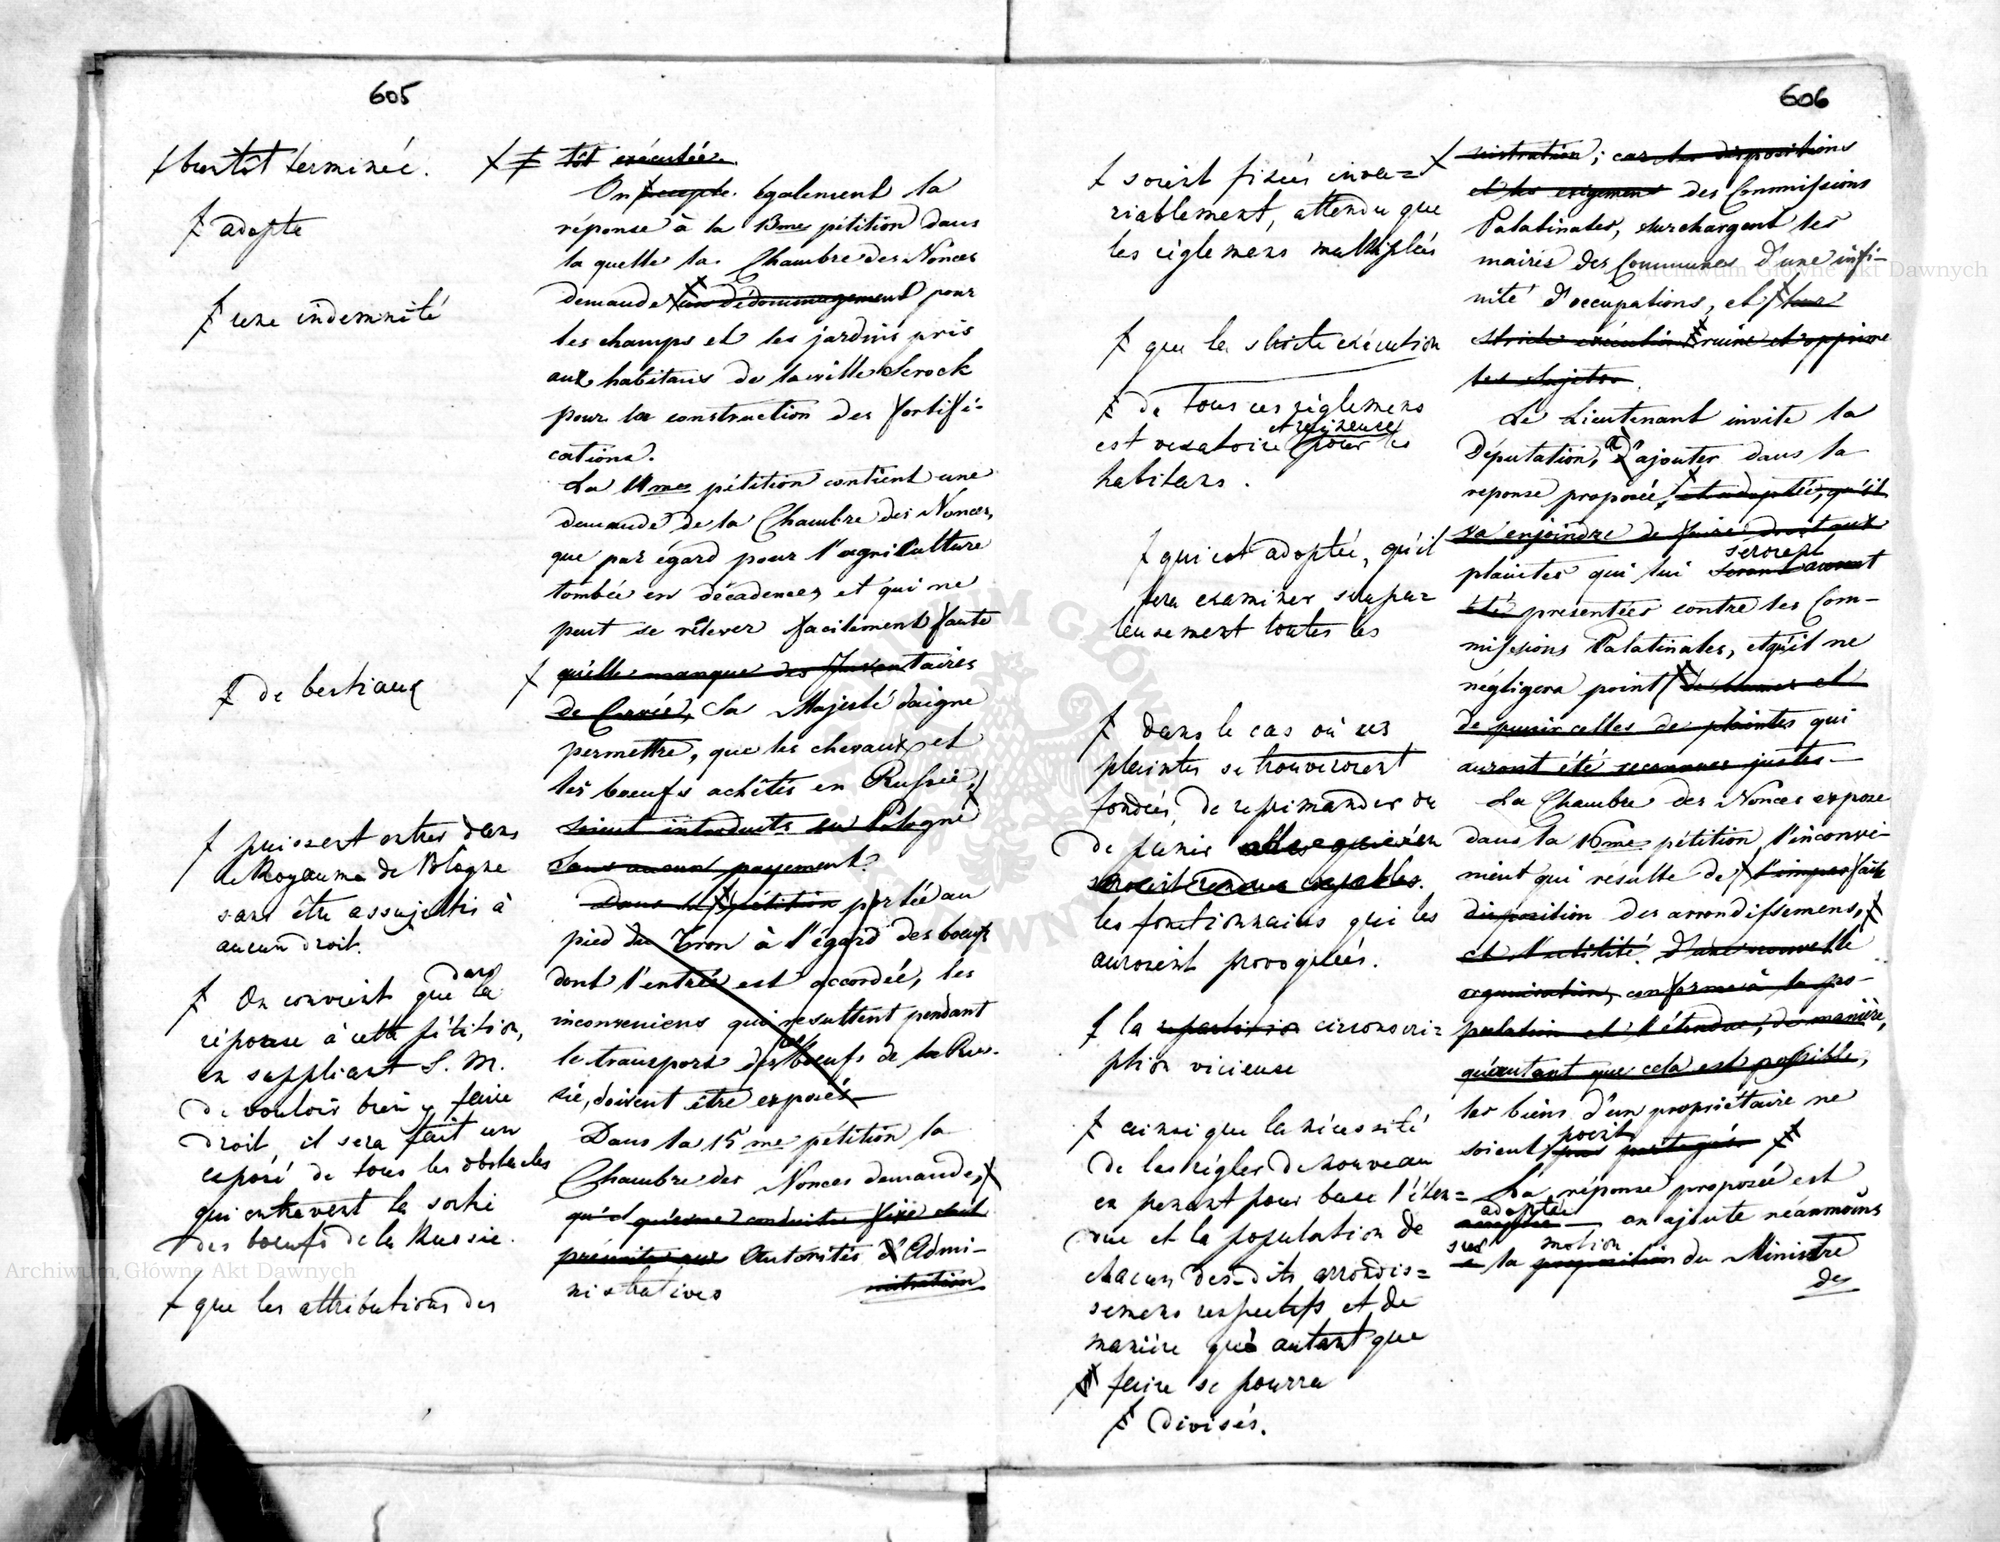 605
ƚ bientôt terminée.
ƚ adopte
ƚ une indemnité
ƚ de bestiaux
ƚ puissent entrer dans
le Royaume de Pologne
sans être assujettis à
aucun droit.
ƚ On convient que dans la
réponse à cette pétition,
en suppliant S. M.
de vouloir bien y faire
droit, il sera fait un
exposé de tous les obstacles
qui entravent la sortie
des boeufs de la Russie.
ƚ que les attributions des
tôt exécutée.
On accepte également la
réponse à la 13me pétition dans
la quelle la Chambre des Nonces
demande un dédommagement pour
les champs et les jardins pris
aux habitans de la ville Serock
pour la construction des fortifi-
cations.
La 14me pétition contient une
demande de la Chambre des Nonces,
que par égard pour l'agriculture
tombée en décadence, et qui ne
peut se rélever facilement faute
qu'elle manque des Inventaires
de Corvée, Sa Majesté daigne
permettre, que les chevaux et
les boeufs achétés en Russie,
soient introduits en Pologne
sans aucun payement.
Dans la pétition portée au
pied du Tron à l'égard des boeufs
dont l'entrée est accordée, les
inconveniens qui resultent pendant
le transport des boeufs de la Rus-
sie, doivent être exposés
Dans la 15me pétition la
Chambre des Nonces demande,
qu'il qu'une conduite fixe soit
préscrite aux Autorités d'Admi-
nistratives nistration
606
ƚ soient fixées inva=
riablement, attendu que
les règlemens multipliés
ƚ que la stricte exécution
ƚ de tous ces règlemens
est vexatoire et ruineuse pour les
habitans.
ƚ qui est adoptée, qu'il
fera examiner scrupu=
leusement toutes les
ƚ dans le cas où ces
plaintes se trouveroient
fondées, de reprimander ou
de punir
les fonctionnaires qui les
auroient provoquées.
ƚ la repartition circonscri=
ption vicieuse
ƚ ainsi que la nécessité
de les régler de nouveau
en prenant pour base l'éten=
due et la population de
chacun desdits arrondis=
semens respectifs et de
manière que autant que
faire se pourra
ƚ divisés.
nistration; car les dispositions
et les exigemens des Commissions
Palatinales, surchargent les
maires des Communes d'une infi-
nité d'occupations, et leur
stricte exécution ruine et opprime
les sujets.
Le Lieutenant invite la
Députation, à d'ajouter dans la
reponse proposée, et adoptée, qu'il
va enjoindre de faire droit aux
plaintes qui lui seroient seront auront
été présentées contre les Com-
missions Palatinales, et qu'il ne
négligera point de blamer et
de punir celles de plaintes qui
auront été reconnues justes
La Chambre des Nonces expose
dans la 16me pétition l'inconvé-
nient qui résulte de l'imparfaite
disposition des arrondissemens,
et l'utilité d'une nouvelle
organisation, conforme à la po-
pulation et l'étendue, de manière,
qu'autant que cela est possible,
les biens d'un propriétaire ne
soient point pas partagés
La réponse proposée est
adoptée on ajoute néanmoins
sur a la motion proposition du Ministre
des